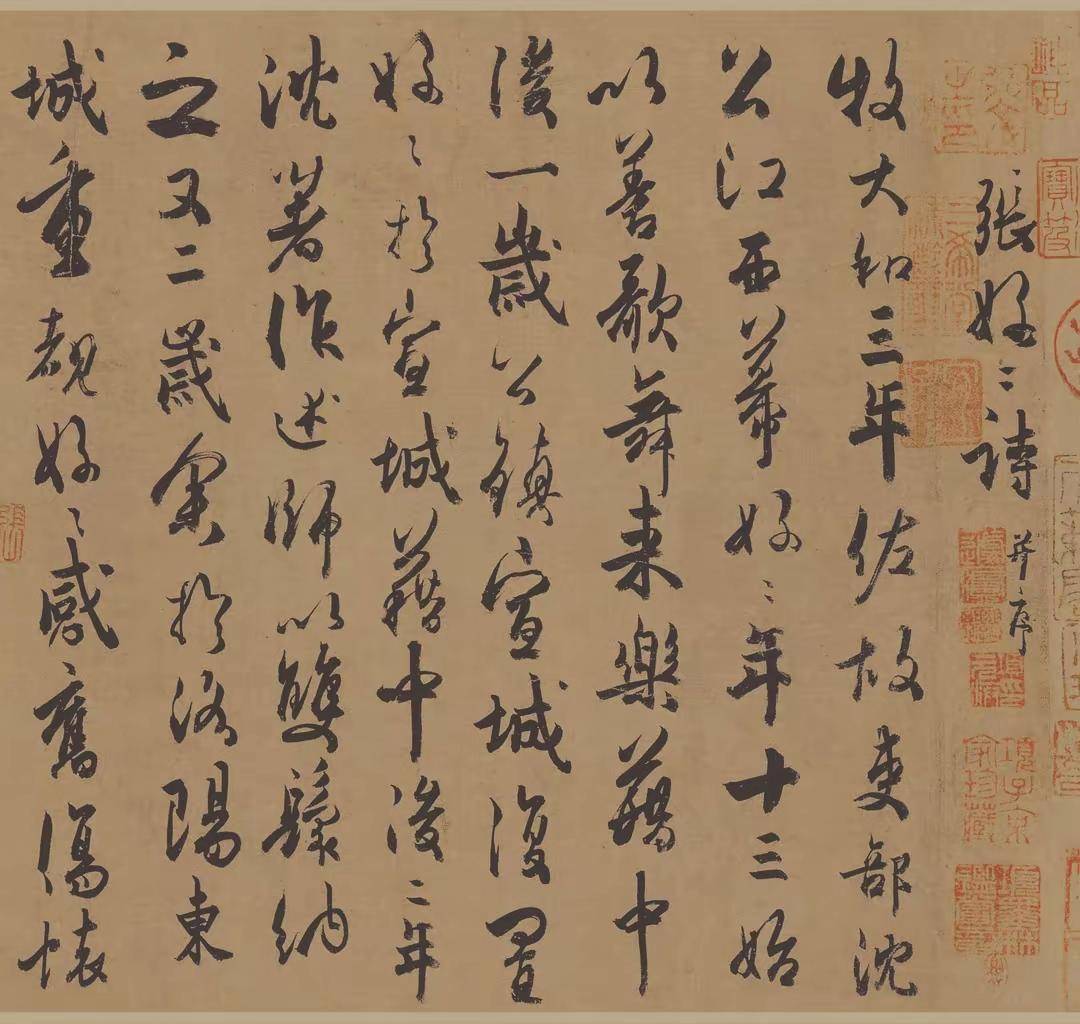 張好〻詩并序
牧大和三年佐故吏部沈
公江西幕好〻年十三始
以善歌舞来樂籍中
後一歲公鎮宣城復置
好〻於宣城籍中後二年
沈著作述師以雙鬟納
之又二歲余於洛陽東
城重覩好〻感舊傷懷